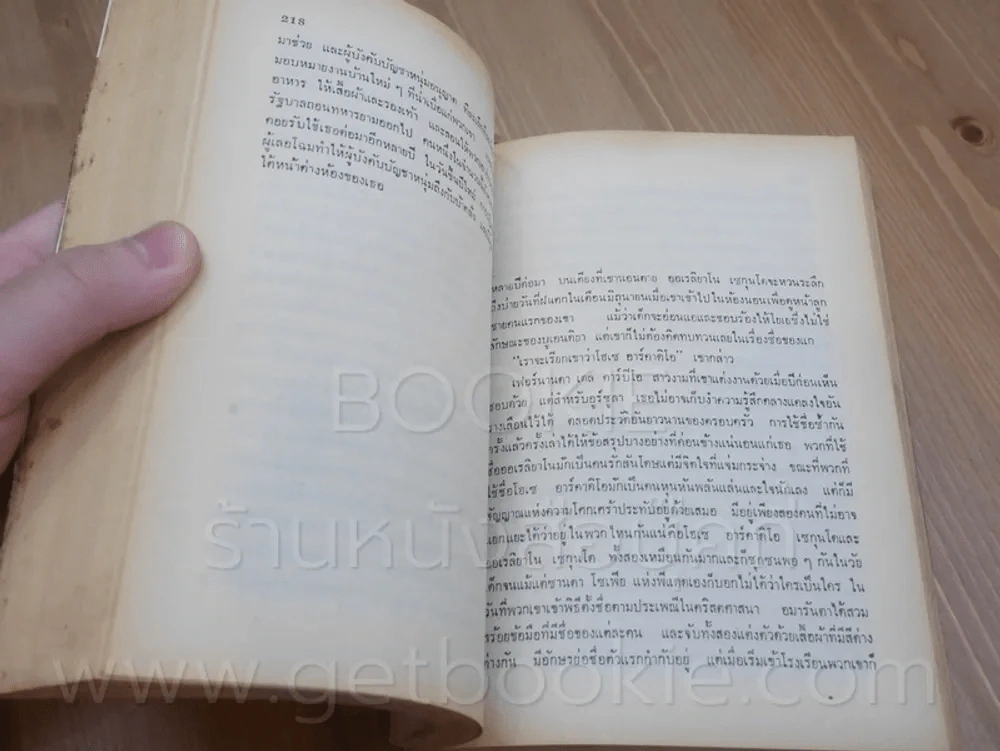 218
มาช่วย และผู้บังคับบัญชาหนุ่มอนุญาต
มอบหมายงานบ้านใหม่ ๆ ที่น่าเบื่อแก่พวกเขา
อาหาร ให้เสื้อผ้าและรองเท้า และสอนให้พวกเขา
รัฐบาลถอนทหารยามออกไป คนหนึ่งในจำนวนนั้น
คอยรับใช้เธอต่อมาอีกหลายปี ในวันขึ้นปีใหม่
ผู้เลอโฉมทำให้ผู้บังคับบัญชาหนุ่มถึงกับบ้าคลั่ง
ใต้หน้าต่างห้องของเธอ
หลายปีต่อมา บนเตียงที่เขานอนตาย ออเรลิยาโน เซกุนโดจะหวนระลึก
ถึงบ่ายวันที่ฝนตกในเดือนมิถุนายนเมื่อเขาเข้าไปในห้องนอนเพื่อดูหน้าลูก
ชายคนแรกของเขา แม้ว่าเด็กจะอ่อนแอและชอบร้องไห้โยเยซึ่งไม่ใช่
ลักษณะของบูเอนดิยา แต่เขาก็ไม่ต้องคิดทบทวนเลยในเรื่องชื่อของแก
"เราจะเรียกเขาว่าโฮเซ อาร์คาดิโอ" เขากล่าว
เฟอร์นานดา เดล คาร์ปิโอ สาวงามที่เขาแต่งงานด้วยเมื่อปีก่อนเห็น
ชอบด้วย แต่สำหรับอูร์ซูลา เธอไม่อาจเก็บงำความรู้สึกคลางแคลงใจอัน
รางเลือนไว้ได้ ตลอดประวัติอันยาวนานของครอบครัว การใช้ชื่อซ้ำกัน
ครั้งแล้วครั้งเล่าได้ให้ข้อสรุปบางอย่างที่ค่อนข้างแน่นอนแก่เธอ พวกที่ใช้
ชื่อออเรลิยาโนมักเป็นคนรักสันโดษแต่มีจิตใจที่แจ่มกระจ่าง ขณะที่พวกที่
ใช้ชื่อโฮเซ อาร์คาดิโอมักเป็นคนหุนหันพลันแล่นและใจนักเลง แต่ก็มี
สัญญาณแห่งความโศกเศร้าประทับอยู่ด้วยเสมอ มีอยู่เพียงสองคนที่ไม่อาจ
แยกแยะได้ว่าอยู่ในพวกไหนกันแน่คือโฮเซ อาร์คาดิโอ เซกุนโดและ
ออเรลิยาโน เซกุนโด ทั้งสองเหมือนกันมากและก็ซุกซนพอ ๆ กันในวัย
เด็กจนแม้แต่ซานตา โซเฟีย แห่งพีแอดเองก็บอกไม่ได้ว่าใครเป็นใคร ใน
วันที่พวกเขาเข้าพิธีตั้งชื่อตามประเพณีในคริสตศาสนา อมารันตาได้สวม
สร้อยข้อมือที่มีชื่อของแต่ละคน และจับทั้งสองแต่งตัวด้วยเสื้อผ้าที่มีสีต่าง
ต่างกัน มีอักษรย่อชื่อตัวแรกกำกับอยู่ แต่เมื่อเริ่มเข้าโรงเรียนพวกเขาก็
BOOKIE
www.getbookie.com